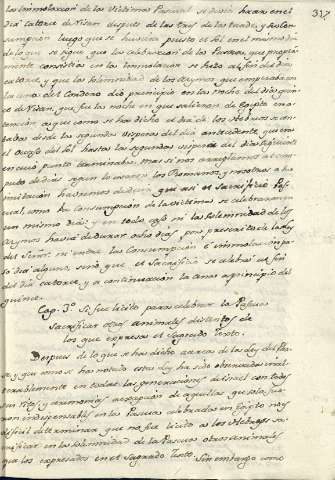 317
la immolacion de la Victima Pascual se devia hazer en el
dia catorze de Nisan despues de las tres de la tarde, y su con-
sumpcion luego que se huviera puesto el sol en el mismo dia
de lo que se sigue que la celebracion de la Pascua, que propia-
mente consistia en la immolacion se hizo al fin del dia
catorze, y que la solemnidad de los Azymos que empezava en
la cena del Cordero dio principio en la noche del dia quin-
ce de Nisan, que fue la noche en que salieron de Egipto en a-
tencion a que como se ha dicho el dia de los Hebreos se con-
tava desde las segundas visperas del dia antecedente, que era
el ocaso del Sol hasta las segundas visperas del dia siguiente
en cuio punto terminaba. mas si nos arreglamos al com-
puto de dias segun lo usaron los Romanos, y nosotros a su
imitacion havremos de decir que assi el sacrificio Pas-
cual, como la consumpcion de la victima se celebraron en
un mismo dia; y en todo caso ni la solemnidad de los
azymos havia de durar ocho dias por precepto de la ley
del Señor. ni entre la Consumpcion e immolacion
dia alguno, sino que el Sacrificio se celebrò al fin
del dia catorze, y a continuacion la cena a principio del
quinze.
Cap. 3.º Si fue licito para celebrar la Pascua
sacrificar otros animales distintos de
los que expresa el Sagrado Texto.
Despues de lo que se ha dicho acerca de la ley del Pas-
cua, y que como se ha notado esta ley ha sido observada invio-
lablemente en todas las generaciones de Israel con todos
sus Ritos, y ceremonias a excepcion de aquellas que solo fue-
ron indispensables en la Pascua celebrada en Egipto no es
dificil determinar que no fue licito a los Hebreos sa-
crificar en la solemnidad de la Pascua otros animales
que los expresados en el Sagrado Texto. Sin embargo como